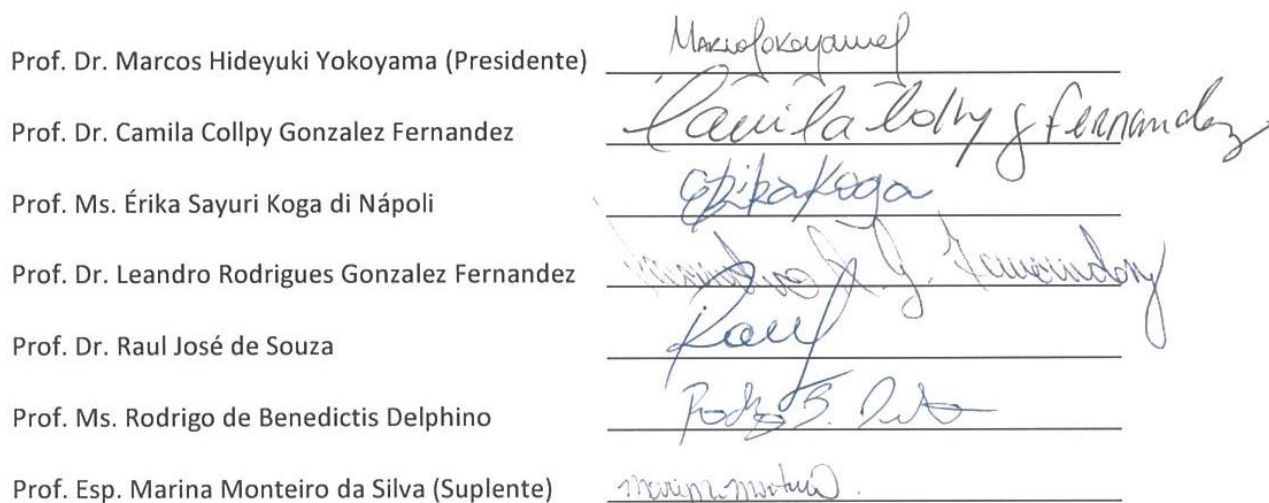 Prof. Dr. Marcos Hideyuki Yokoyama (Presidente)
Prof. Dr. Camila Collpy Gonzalez Fernandez Camila Collpy G Fernandez
Prof. Ms. Érika Sayuri Koga di Nápoli Erika Koga
Prof. Dr. Leandro Rodrigues Gonzalez Fernandez
Prof. Dr. Raul José de Souza Raul
Prof. Ms. Rodrigo de Benedictis Delphino
Prof. Esp. Marina Monteiro da Silva (Suplente)